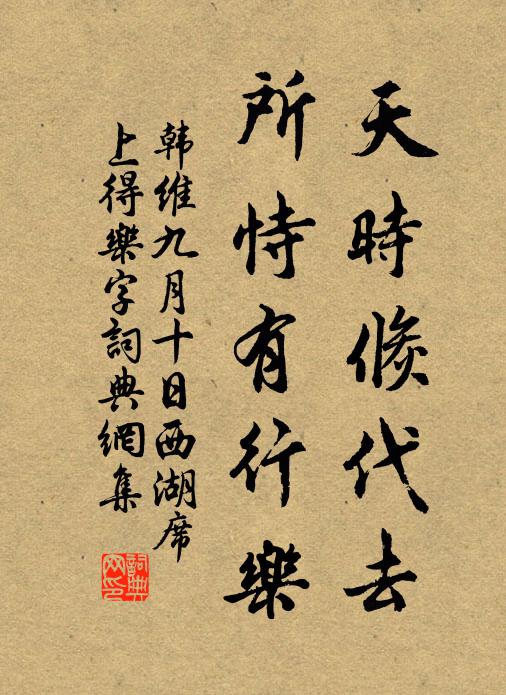 天時倏代去
所恃有行樂
韩维九月十日西湖席
上得樂字詞典網集
詞典
网印